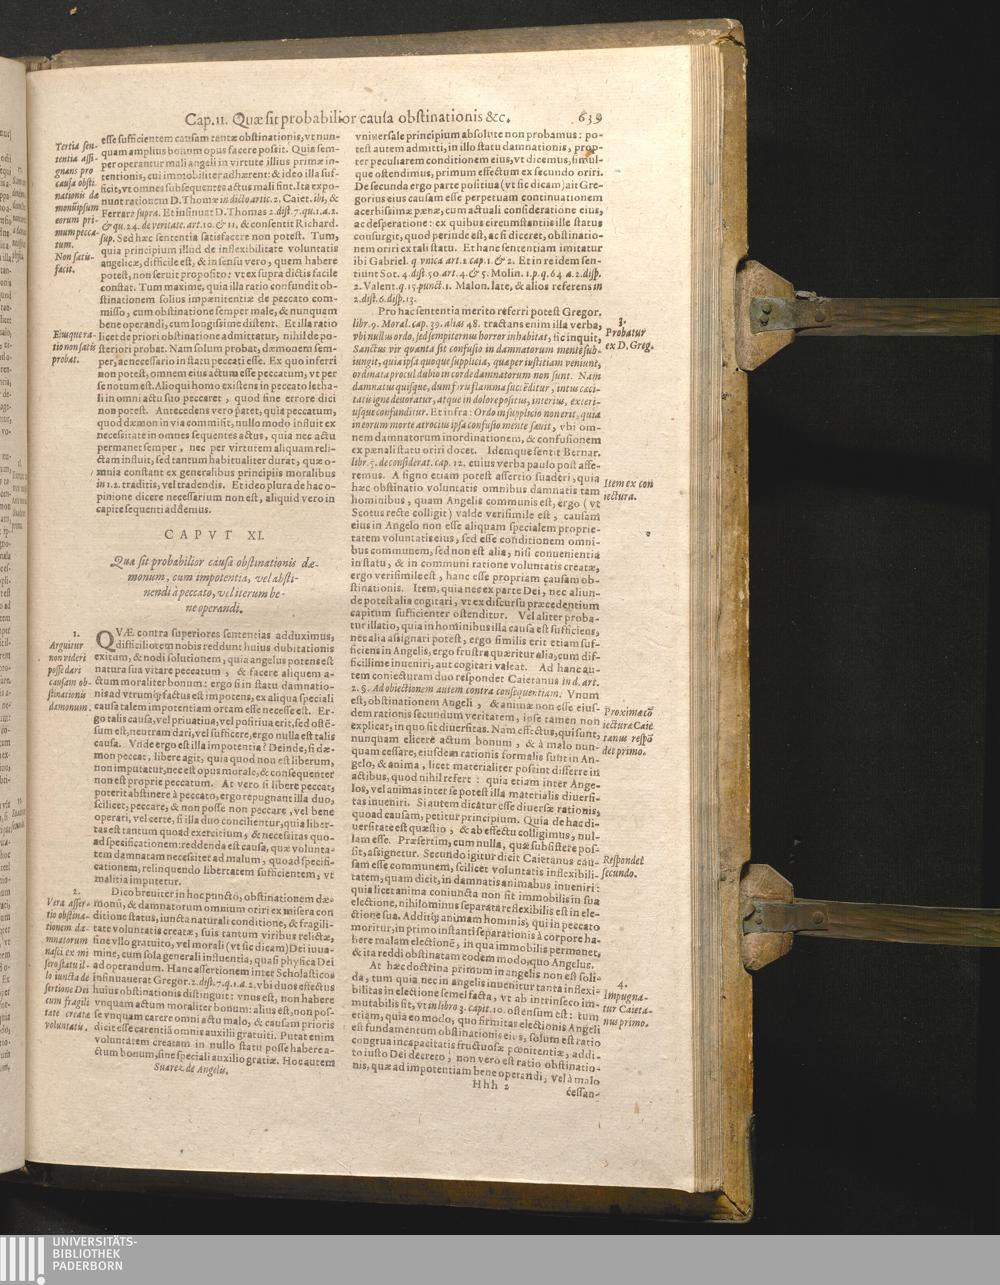 Cap. 11. Quæ sit probabilior causa obstinationis &c. 639
Tertia sen-
tentia assi-
gnans pro
causa obsti
nationis dæ
monũ ipsum
eorum pri-
mum pecca-
tum.
Non satis-
facit.
Eiusque ra-
tio non satis
probat.
esse sufficientem causam tantæ obstinationis, vt nun-
quam amplius bonum opus facere possit. Quia sem-
per operantur mali angeli in virtute illius primæ in-
tentionis, cui immobiliter adhærent: & ideo illa suf-
ficit, vt omnes subsequentes actus mali sint. Ita expo-
nunt rationem D. Thomæ in dicto artic. 2. Caiet. ibi, &
Ferrar. supra. Et insinuat D. Thomas 2. dist. 7. qu. 1. a. 2.
& qu. 24. de veritate. art. 10. & 11. & consentit Richard.
sup. Sed hæc sententia satisfacere non potest. Tum,
quia principium illud de inflexibilitate voluntatis
angelicæ, difficile est, & in sensu vero, quem habere
potest, non seruit proposito: vt ex supra dictis facile
constat. Tum maxime, quia illa ratio confundit ob-
stinationem solius impœnitentiæ de peccato com-
misso, cum obstinatione semper male, & nunquam
bene operandi, cum longissime distent. Et illa ratio
licet de priori obstinatione admittatur, nihil de po-
steriori probat. Nam solum probat, dæmonem sem-
per, ac necessario in statu peccati esse. Ex quo inferri
non potest, omnem eius actum esse peccatum, vt per
se notum est. Alioqui homo existens in peccato letha-
li in omni actu suo peccaret, quod sine errore dici
non potest. Antecedens vero patet, quia peccatum,
quod dæmon in via commisit, nullo modo influit ex
necessitate in omnes sequentes actus, quia nec actu
permanet semper, nec per virtutem aliquam reli-
ctam influit, sed tantum habitualiter durat, quæ o-
mnia constant ex generalibus principiis moralibus
in 1. 2. traditis, vel tradendis. Et ideo plura de hac o-
pinione dicere necessarium non est, aliquid vero in
capite sequenti addemus.
CAPVT XI.
Quæ sit probabilior causa obstinationis dæ-
monum, cum impotentia, vel absti-
nendi à peccato, vel iterum be-
ne operandi.
1.
Arguitur
non videri
posse dari
causam ob-
stinationis
dæmonum.
QVÆ contra superiores sententias adduximus,
difficiliorem nobis reddunt huius dubitationis
exitum, & nodi solutionem, quia angelus potens est
natura sua vitare peccatum, & facere aliquem a-
ctum moraliter bonum: ergo si in statu damnatio-
nis ad vtrumq; factus est impotens, ex aliqua speciali
causa talem impotentiam ortam esse necesse est. Er-
go talis causa, vel priuatiua, vel positiua erit, sed ostẽ-
sum est, neutram dari, vel sufficere, ergo nulla est talis
causa. Vnde ergo est illa impotentia? Deinde, si dæ-
mon peccat, libere agit, quia quod non est liberum,
non imputatur, nec est opus morale, & consequenter
non est proprie peccatum. At vero si libere peccat,
poterit abstinere à peccato, ergo repugnant illa duo,
scilicet, peccare, & non posse non peccare, vel bene
operari, vel certe, si illa duo concilientur, quia liber-
tas est tantum quoad exercitium, & necessitas quo-
ad specificationem: reddenda est causa, quæ volunta-
tem damnatam necessitet ad malum, quoad specifi-
cationem, relinquendo libertatem sufficientem, vt
malitia imputetur.
2.
Vera asser-
tio obstina-
tionem dæ-
mnatorum
nasci ex mi
sero statu il-
lo iuncta de
sertione Dei
cum fragili
tate creatæ
voluntatis.
Dico breuiter in hoc puncto, obstinationem dæ-
monũ, & damnatorum omnium oriri ex misera con
ditione status, iuncta naturali conditione, & fragili-
tate voluntatis creatæ, suis tantum viribus relictæ,
sine vllo gratuito, vel morali (vt sic dicam) Dei iuua-
mine, cum sola generali influentia, quasi physica Dei
ad operandum. Hanc assertionem inter Scholasticos
insinuauerat Gregor. 2. dist. 7. q. 1. a. 2. vbi duos effectus
huius obstinationis distinguit: vnus est, non habere
vnquam actum moraliter bonum: alius est, non pos-
se vnquam carere omni actu malo, & causam prioris
dicit esse carentiã omnis auxilii gratuiti. Putat enim
voluntatem creatam in nullo statu posse habere a-
ctum bonum, sine speciali auxilio gratiæ. Hoc autem
Suarez de Angelis.
vniuersale principium absolute non probamus: po-
test autem admitti, in illo statu damnationis, prop-
ter peculiarem conditionem eius, vt dicemus, simul-
que ostendimus, primum effectum ex secundo oriri.
De secunda ergo parte positiua (vt sic dicam) ait Gre-
gorius eius causam esse perpetuam continuationem
acerbissimæ pœnæ, cum actuali consideratione eius,
ac desperatione: ex quibus circumstantiis ille status
consurgit, quod perinde est, ac si diceret, obstinatio-
nem oriri ex tali statu. Et hanc sententiam imitatur
ibi Gabriel. q vnica art. 2 cap. 1. & 2. Et in re idem sen-
tiunt Sot. 4. dist. 50. art. 4. & 5. Molin. 1. p. q. 64 a. 2. disp.
2. Valent. q. 15. punct. 1. Malon. late, & alios referens in
2. dist. 6. disp. 13.
Pro hac sententia merito referri potest Gregor.
libr. 9. Moral. cap. 39. alias 48. tractans enim illa verba,
vbi nullus ordo, sed sempiternus horror inhabitat, sic inquit,
Sanctus vir quanta sit confusio in damnatorum mente sub-
iungit, quia ipsa quoque supplicia, quæ per iustitiam veniunt,
ordinata procul dubio in corde damnatorum non sunt. Nam
damnatus quisque, dum foris flamma succẽditur, intus cæci-
tatis igne deuoratur, atque in dolore positus, interius, exteri-
usque confunditur. Et infra: Ordo in supplicio non erit, quia
in eorum morte atrocius ipsa confusio mente sæuit, vbi om-
nem damnatorum inordinationem, & confusionem
ex pœnali statu oriri docet. Idemque sentit Bernar.
libr. 5. de considerat. cap. 12. cuius verba paulo post affe-
remus. A signo etiam potest assertio suaderi, quia
hæc obstinatio voluntatis omnibus damnatis tam
hominibus, quam Angelis communis est, ergo (vt
Scotus recte colligit) valde verisimile est, causam
eius in Angelo non esse aliquam specialem proprie-
tatem voluntatis eius, sed esse conditionem omni-
bus communem, sed non est alia, nisi conuenientia
in statu, & in communi ratione voluntatis creatæ,
ergo verisimile est, hanc esse propriam causam ob-
stinationis. Item, quia nec ex parte Dei, nec aliun-
de potest alia cogitari, vt ex discursu præcedentium
capitum sufficienter ostenditur. Vel aliter proba-
tur illatio, quia in hominibus illa causa est sufficiens,
nec alia assignari potest, ergo similis erit etiam suf-
ficiens in Angelis, ergo frustra quæritur alia, cum dif-
ficillime inueniri, aut cogitari valeat. Ad hanc au-
tem coniecturam duo respondet Caietanus in d. art.
2. §. Ad obiectionem autem contra consequentiam. Vnum
est, obstinationem Angeli, & animæ non esse eius-
dem rationis secundum veritatem, ipse tamen non
explicat, in quo sit diuersitas. Nam effectus, qui sunt,
nunquam elicere actum bonum, & à malo nun-
quam cessare, eiusdem rationis formalis sunt in An-
gelo, & anima, licet materialiter possint differre in
actibus, quod nihil refert: quia etiam inter Ange-
los, vel animas inter se potest illa materialis diuersi-
tas inueniri. Si autem dicatur esse diuersæ rationis,
quoad causam, petitur principium. Quia de hac di-
uersitate est quæstio, & ab effectu colligimus, nul-
lam esse. Præsertim, cum nulla, quæ subsistere pos-
sit, assignetur. Secundo igitur dicit Caietanus cau-
sam esse communem, scilicet voluntatis inflexibili-
tatem, quam dicit, in damnatis animabus inueniri:
quia licet anima coniuncta non sit immobilis in sua
electione, nihilominus separata inflexibilis est in ele-
ctione sua. Additq; animam hominis, qui in peccato
moritur, in primo instanti separationis à corpore ha-
bere malam electionẽ, in qua immobilis permanet,
& ita reddi obstinatam eodem modo, quo Angelus.
At hæc doctrina primum in angelis non est soli-
da, tum quia nec in angelis inuenitur tanta inflexi-
bilitas in electione semel facta, vt ab intrinseco im-
mutabilis sit, vt in libro 3. capit. 10. ostensum est: tum
etiam, quia eo modo, quo firmitas electionis Angeli
est fundamentum obstinationis eius, solum est ratio
congrua incapacitatis fructuosæ pœnitentiæ, addi-
to iusto Dei decreto, non vero est ratio obstinatio-
nis, quæ ad impotentiam bene operandi, vel à malo
Hhh 2
cessan-
3.
Probatur
ex D. Greg.
Item ex con
iectura.
Proxima cõ
iecturæ Caie
tanus respõ
det primo.
Respondet
secundo.
4.
Impugna-
tur Caieta-
nus primo.
UNIVERSITÄTS-
BIBLIOTHEK
PADERBORN